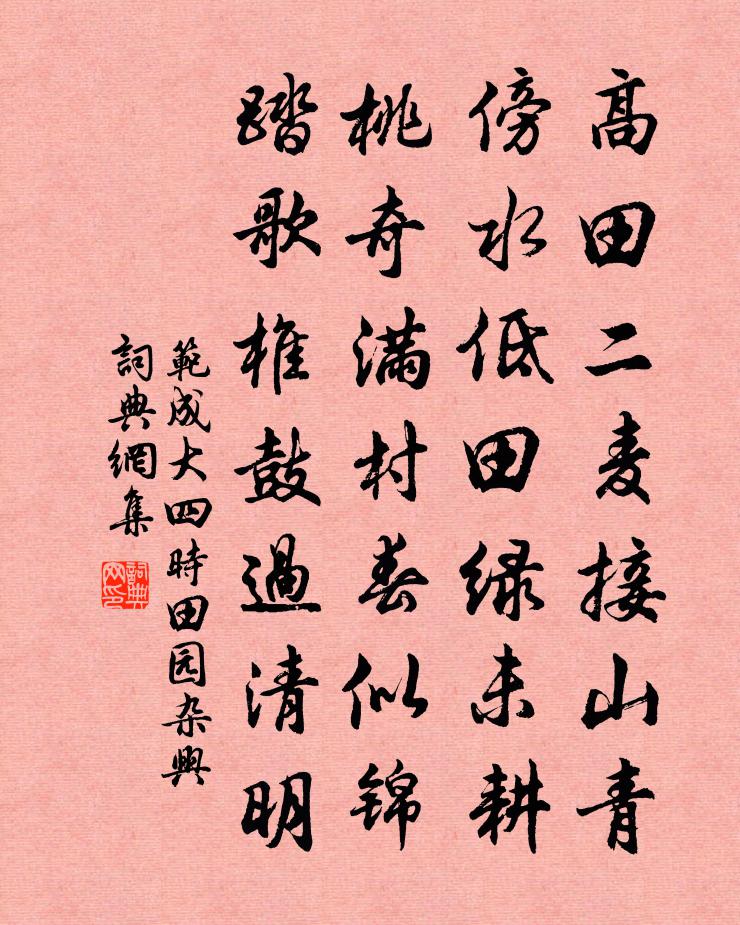 高田二麦接山青
傍水低田绿未耕
桃奇满村春似锦
踏歌椎鼓過清明
範成大四時田园杂興
詞典網集
詞典网印